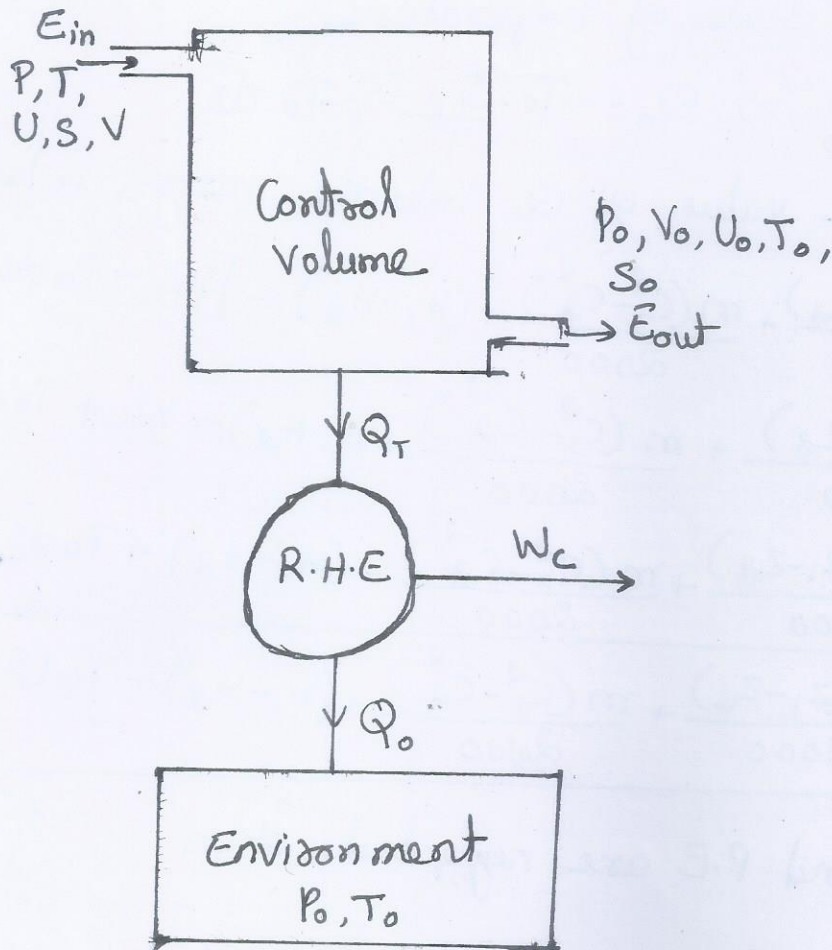 Ein
P, T,
U, S, V
Control
Volume
P₀, V₀, U₀, T₀,
S₀
Eout
Q_T
R.H.E
W_c
Q₀
Environment
P₀, T₀